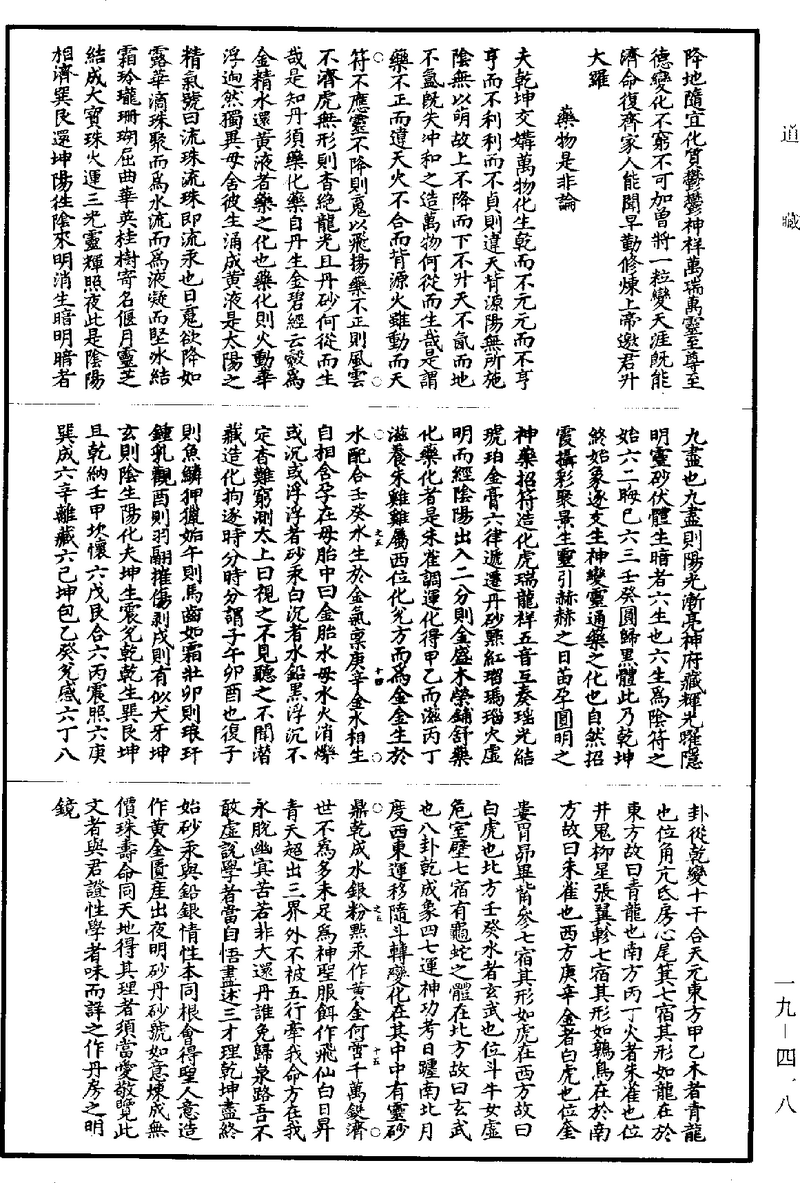 道藏
降地隨宜化質鬱鬱神祥萬瑞萬靈至尊至
德變化不窮不可加曽將一粒變天涯既能
濟命復齊家人能聞早勤修煉上帝邀君升
大羅
藥物是非論
夫乾坤交媾萬物化生乾而不元元而不亨
亨而不利利而不貞則違天背源陽無所施
陰無以萌故上不降而下不升天不氤而地
不氲旣失冲和之造萬物何從而生哉是謂
藥不正而違天火不合而背源火雖動而天
符不應靈不降則䰟以飛揚藥不正則風雲
不濟虎無形則杳絶龍光且丹砂何從而生
哉是知丹須藥化藥自丹生金碧經云㲉為
金精水還黄液者藥之化也藥化則火動華
浮逈然獨異母舍彼生涌成黄液是太陽之
精氣號曰流珠流珠即流汞也日䰟欲降如
露華滴珠聚而為水流而為液凝而堅冰結
霜玲瓏珊瑚屈曲華英桂樹寄名偃月靈芝
結成大寳珠火運三光靈輝照夜此是陰陽
相濟巽艮還坤陽徃陰來明消生暗明暗者
九盡也九盡則陽光漸亮神府藏輝光曜隱
明靈砂伏體生暗者六生也六生為陰符之
始六二晦巳六三壬癸圓歸黒體此乃乾坤
終始象逐支生神變靈通藥之化也自然招
霞攝彩聚景生靈引赫赫之日菡孕圓明之
神藥招符造化虎瑞龍祥五音互奏瑶光結
琥珀金膏六律遞遷丹砂㸃紅瑠瑪瑙火虚
明而經陰陽出入二分則金盛木榮鋪舒藥
化藥化者是朱雀調運化得甲乙而滋丙丁
滋養朱雞雞屬西位化兊方而為金金生於
水配合壬癸水生於金氣稟庚辛金水相生
自相含孕在母胎中曰金胎水母水火消爍
或沉或浮浮者砂汞白沉者水鉛黒浮沉不
定杳難窮測太上曰視之不見聽之不聞潜
藏造化拘逐時分時分謂子午卯酉也復子
則魚鱗狎獵姤午則馬齒如霜壯卯則琅玕
鍾乳觀酉則羽翮摧傷剥戌則有似犬牙坤
玄則陰生陽化夫坤生震兊乾乾生巽艮坤
且乾納壬甲坎懷六戊艮合六丙震照六庚
巽成六辛離藏六己坤包乙癸兊感六丁八
卦從乾變十干合天元東方甲乙木者青龍
也位角亢氐房心尾箕七宿其形如龍在於
東方故曰青龍也南方丙丁火者朱雀也位
井鬼柳星張翼軫七宿其形如鶉鳥在於南
方故曰朱雀也西方庚辛金者白虎也位奎
婁胃昴畢觜參七宿其形如虎在西方故曰
白虎也北方壬癸水者玄武也位斗牛女虚
危室壁七宿有龜蛇之體在北方故曰玄武
也八卦乾成象四七運神功考日躔南北月
度西東運移隨斗轉變化在其中中有靈砂
鼎乾成水銀粉㸃汞作黄金何啻千萬鎰濟
世不為多未足為神聖服餌作飛仙白日昇
青天超出三界外不被五行牽我命方在我
永脱幽冥苦若非大還丹誰免歸泉路吾不
敢虚説學者當自悟盡述三才理乾坤盡終
始砂汞與鉛銀情性本同根㑹得聖人意造
作黄金匱産出夜明砂丹砂號如意煉成無
價珠壽命同天地得其理者須當愛敬覽此
文者與君證性學者味而詳之作丹房之明
鏡
一九—四、八